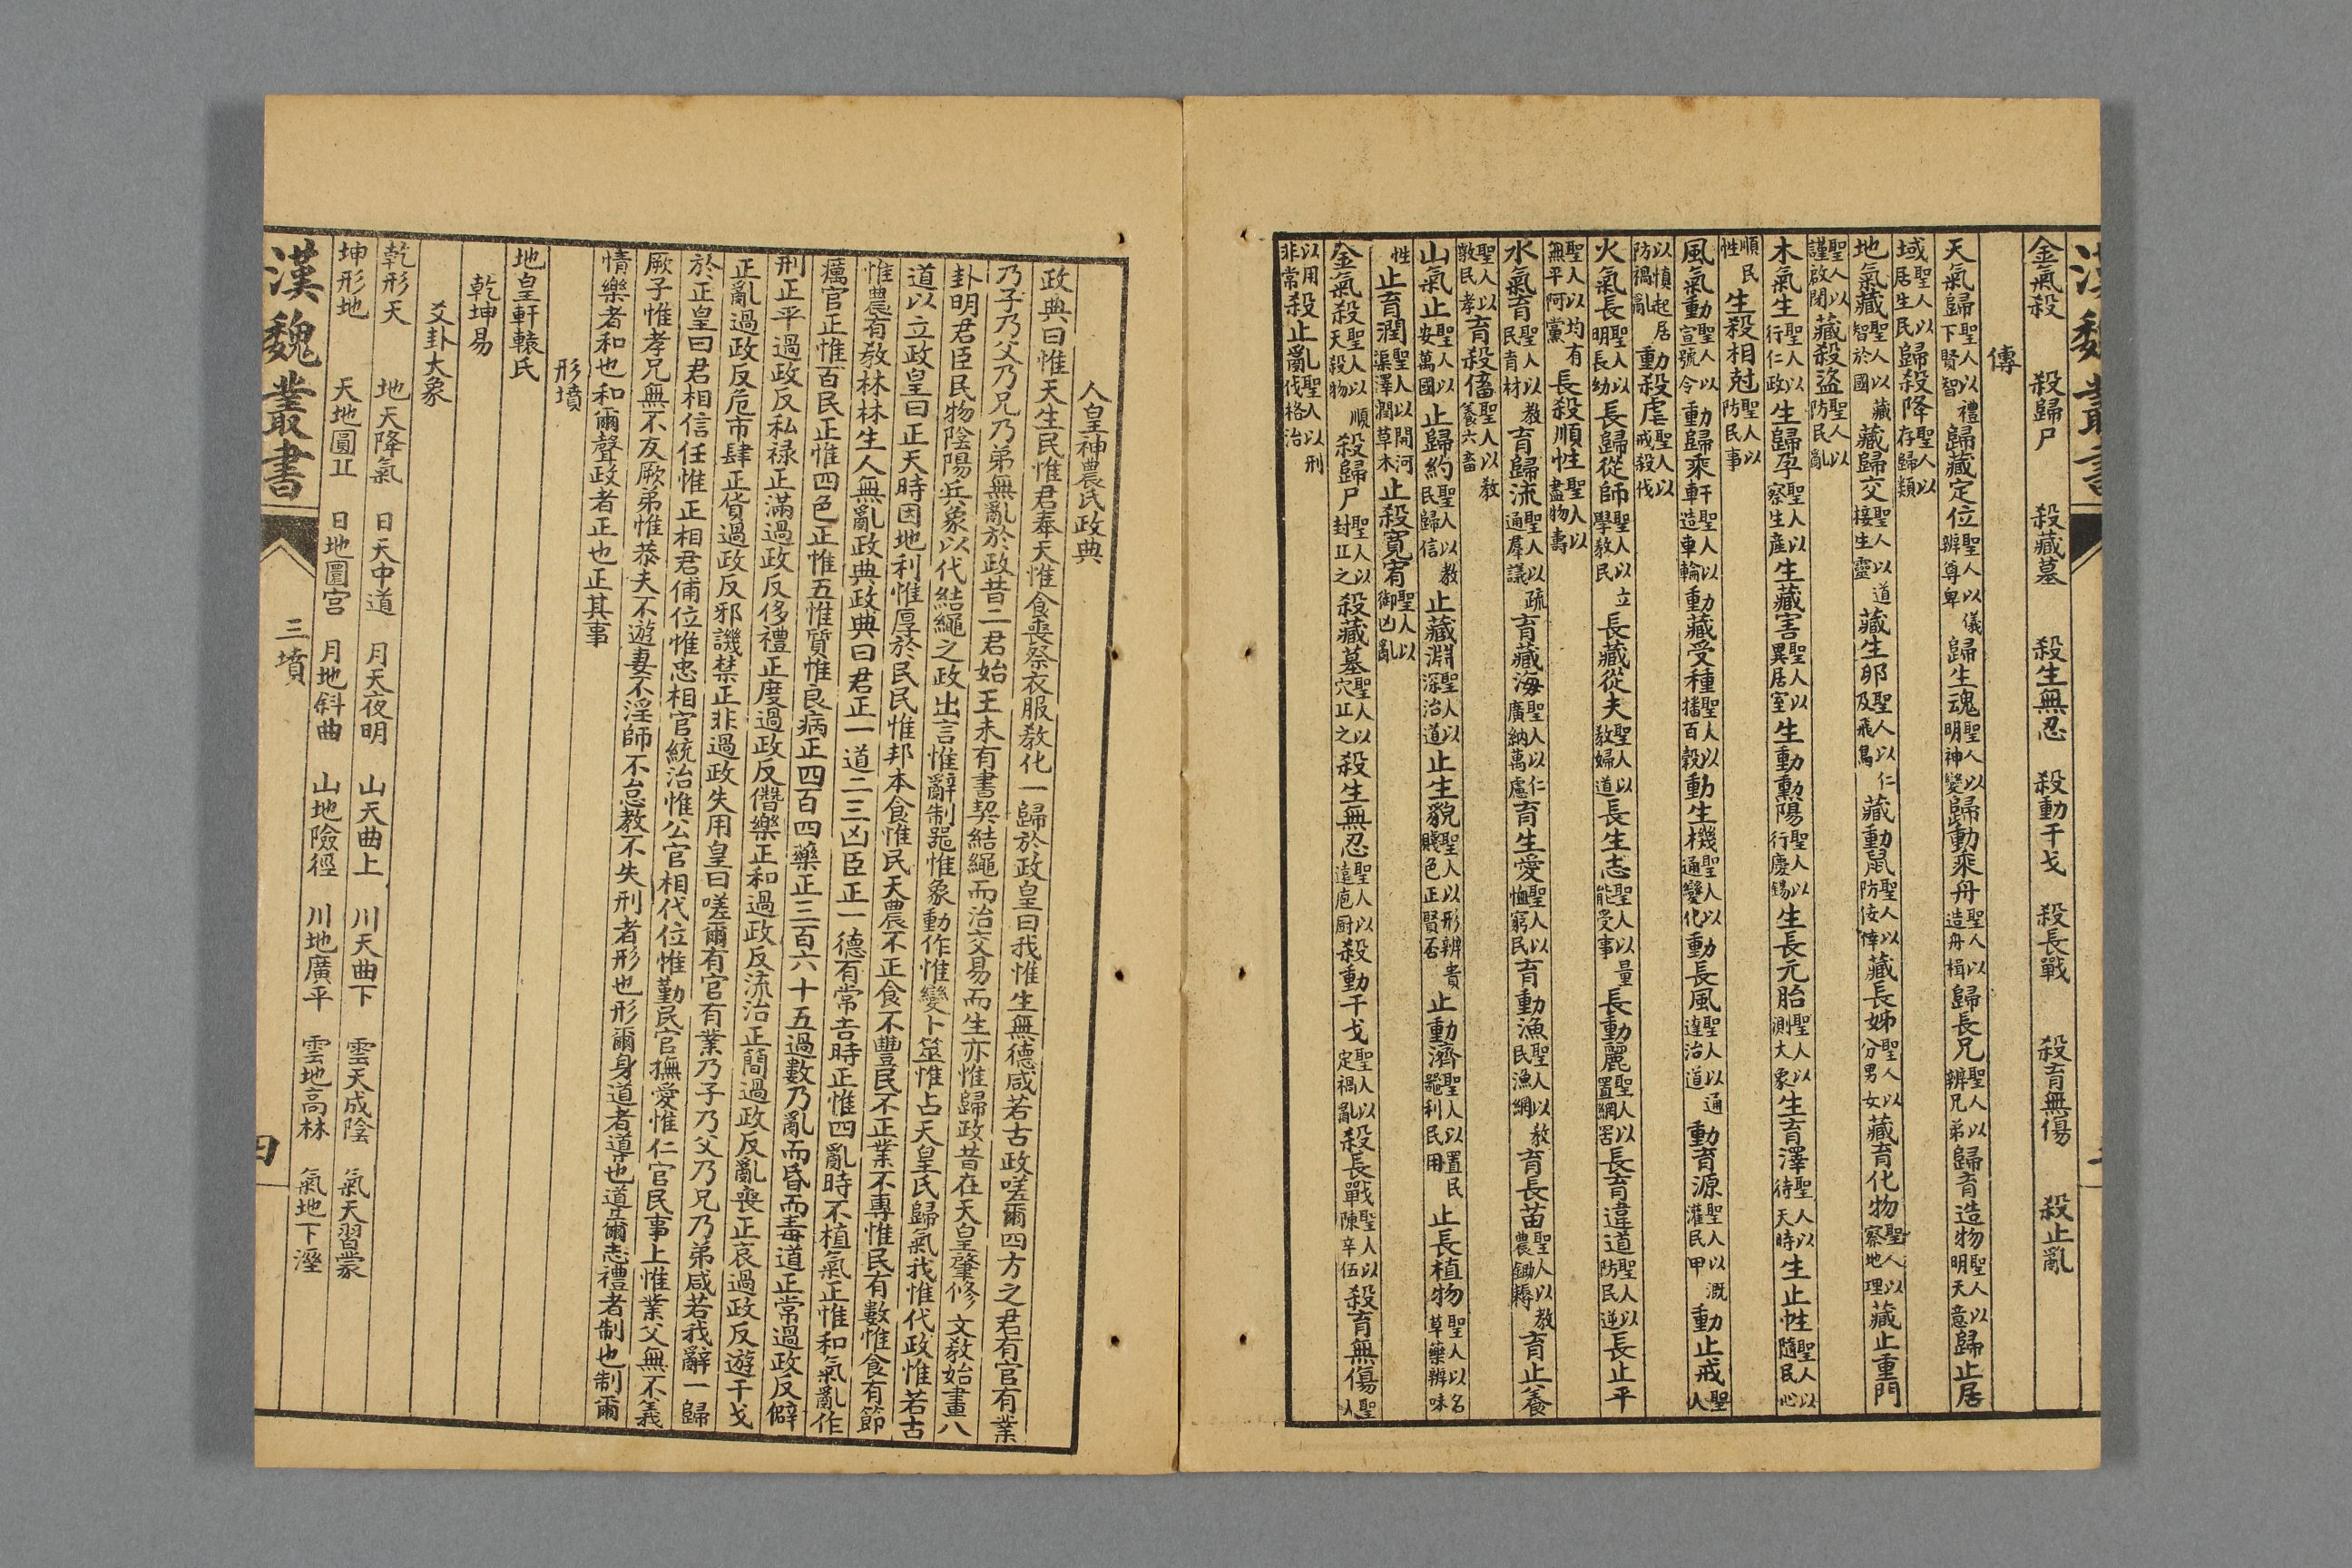 漢魏叢書
金氣殺 殺歸尸 殺藏墓 殺生無忍 殺動干戈 殺長戰 殺育無傷 殺止亂
傳
天氣歸聖人以禮下賢智歸藏定位聖人以儀辨尊卑歸生魂聖人以明神變歸動乘舟聖人以造舟楫歸長兄聖人以辨兄弟歸育造物聖人以明天意歸止居
域聖人以居生民歸殺降聖人以存歸類
地氣藏聖人以藏智於國藏歸交聖人以道接生靈藏生卵聖人以仁及飛鳥藏動鼠聖人以防佞倖藏長姊聖人以分男女藏育化物聖人以察地理藏止重門
聖人以謹啟閉藏殺盜聖人以防民亂
木氣生聖人以行仁政生歸孕聖人以察生產生藏害聖人以異居室生動勳陽聖人以行慶錫生長元胎聖人以測大象生育澤聖人以待天時生止性聖人以隨民心
順民性生殺相尅聖人以防民事
風氣動聖人以宣號令動歸乘軒聖人以造車輪動藏受種聖人以播百穀動生機聖人以通變化動長風聖人以通達治道動育源聖人以溉灌民甲動止戒聖人
以慎起居防禍亂動殺虐聖人以戒殺伐
火氣長聖人以明長幼長歸從師聖人以立學教民長藏從夫聖人以教婦道長生志聖人以量能受事長動麗聖人以置網罟長育違道聖人以防民逆長止平
聖人以均有無平阿黨長殺順性聖人以盡物壽
水氣育聖人以教民育材育歸流聖人以疏通羣議育藏海聖人以仁廣納萬慮育生愛聖人以恤窮民育動漁聖人以教民漁網育長苗聖人以教農鋤耨育止養
聖人以教民孝育殺僃聖人以教養六畜
山氣止聖人以安萬國止歸約聖人以教民歸信止藏淵聖人以深治道止生貌聖人以形辨貴賤色正賢否止動濟聖人以置民器利民用止長植物聖人以名草藥辨味
性止育潤聖人以開河渠澤潤草木止殺寬宥聖人以御凶亂
金氣殺聖人以順天殺物殺歸尸聖人以封正之殺藏墓聖人以穴正之殺生無忍聖人以遠庖廚殺動干戈聖人以定禍亂殺長戰聖人以陳辛伍殺育無傷聖人
以用非常殺止亂聖人以刑伐格治
人皇神農氏政典
政典曰惟天生民惟君奉天惟食喪祭衣服教化一歸於政皇曰我惟生無德咸若古政嗟爾四方之君有官有業
乃子乃父乃兄乃弟無亂於政昔二君始王未有書契結繩而治交易而生亦惟歸政昔在天皇肇修文教始畫八
卦明君臣民物陰陽兵象以代結繩之政出言惟辭制器惟象動作惟變卜筮惟占天皇氏歸氣我惟代政惟若古
道以立政皇曰正天時因地利惟厚於民民惟邦本食惟民天農不正食不豐民不正業不專惟民有數惟食有節
惟農有教林林生人無亂政典政典曰君正一道二三凶臣正一德有常吉時正惟四亂時不植氣正惟和氣亂作
癘官正惟百民正惟四色正惟五惟質惟良病正四百四藥正三百六十五過數乃亂而昏而毒道正常過政反僻
刑正平過政反私祿正滿過政反侈禮正度過政反僭樂正和過政反流治正簡過政反亂喪正哀過政反遊干戈
正亂過政反危市肆正貨過政反邪譏禁正非過政失用皇曰嗟爾有官有業乃子乃父乃兄乃弟咸若我辭一歸
於正皇曰君相信任惟正相君俌位惟忠相官統治惟公官相代位惟勤民官撫愛惟仁官民事上惟業父無不義
厥子惟孝兄無不友厥弟惟恭夫不遊妻不淫師不怠教不失刑者形也形爾身道者導也道爾志禮者制也制爾
情樂者和也和爾聲政者正也正其事
形墳
地皇軒轅氏
乾坤易
爻卦大象
乾形天 地天降氣 日天中道 月天夜明 山天曲上 川天曲下 雲天成陰 氣天習蒙
坤形地 天地圓丘 日地圜宮 月地斜曲 山地險徑 川地廣平 雲地高林 氣地下溼
漢魏叢書 三墳 四